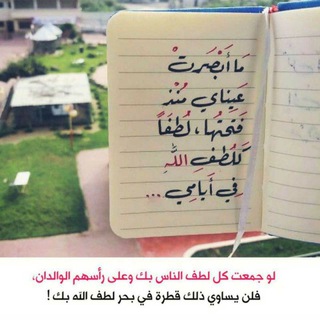 مَا أَبْصَرتْ
عَينَاي مُنْذ
فَتحتُها، لُطفاً
كَلُطفِ اللهِ
فِي أَيامِي ...
لو جمعت كل لطف الناس بك وعلى رأسهم الوالدان،
فلن يساوي ذلك قطرة في بحر لطف الله بك !